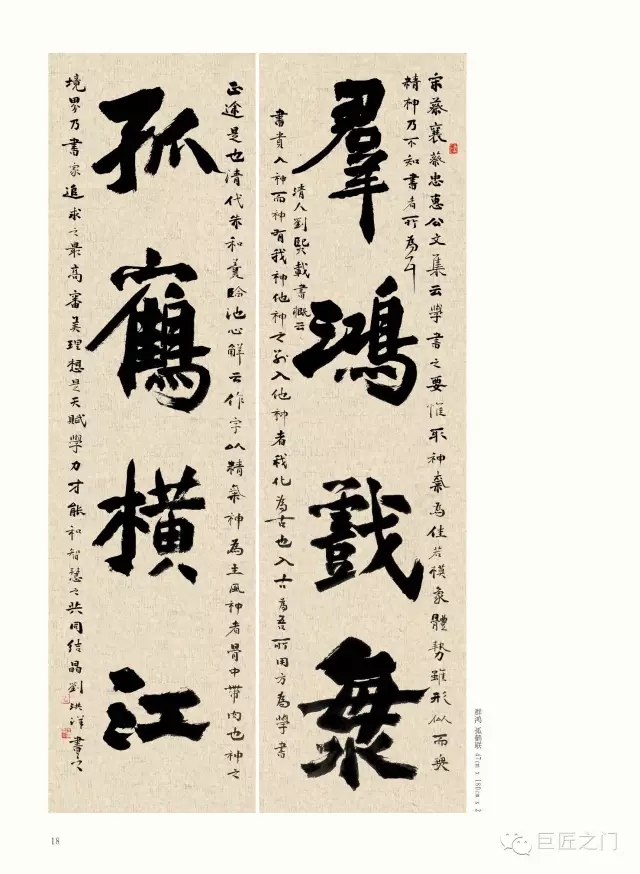 羣鴻戲海
孤鶴橫江
宋蔡襄蔡忠惠公文集云學書之要惟取神氣為佳若模象體勢雖形似而無
精神乃不知書者所為耳
清人劉熙載書概云
書貴入神而神有我神他神之别入他神者我化為古也入古為吾所用方為學書
正途是也清代朱和羹臨池心解云作字以精氣神為主風神者骨中帶肉也神之
境界乃書家追求之最高審美理想是天賦學力才能和智慧之共同结晶劉洪洋書之
群鸿 孤鹤联 47cm x 180cm x 2
18
巨匠之门